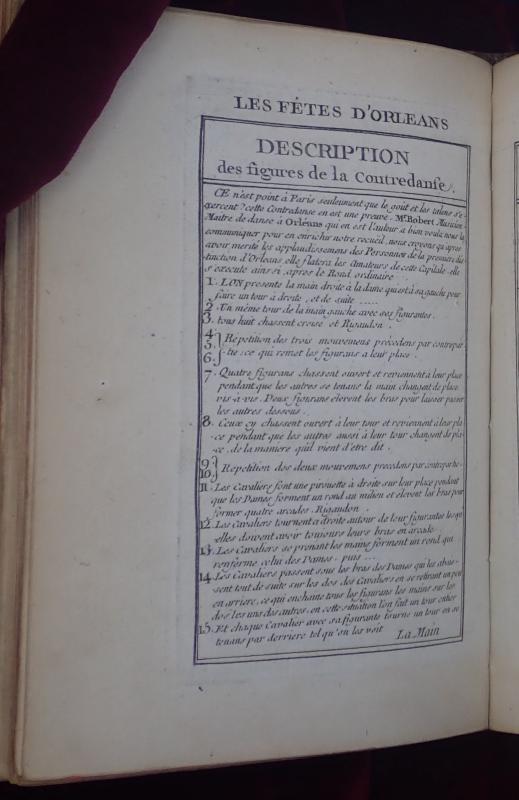 LES FÊTES D'ORLEANS
DESCRIPTION
des figures de la Contredanse.
CE n'est point à Paris seuleument que le goût et les talens s'e-
xercent? cette Contredanse en est une preuve. Mr. Robert Musicien
Maitre de danse à Orléans qui en est l'auteur a bien voulu nous la
communiquer pour en enrichir notre recueil, nous croyons qu'après
avoir merité les applaudissemens des Personnes de la premiere dis-
tinction d'Orleans, elle flatera les Amateurs de cette Capitale. elle
s'execute ainsi, après le Rond ordinaire.
1. LON presente la main droite à la dame qui est à sa gauche pour
faire un tour à droite, et de suite .....
2. Un même tour de la main gauche avec ses figurantes.
3. tous huit chassent croisé et Rigaudon.
4.
5. Repetition des trois mouvemens précedens par contrepar-
6. tie: ce qui remet les figurans a leur place.
7. Quatre figurans chassent ouvert et reviennent à leur place
pendant que les autres se tenans la main changent de place
vis-à-vis. Deux figurans élevent les bras pour laisser passer
les autres dessous.
8. Ceux cy chassent ouvert à leur tour et revienent à leur pla-
ce pendant que les autres aussi à leur tour changent de pla-
ce, de la maniere qu'il vient d'etre dit.
9.
10. Repetition des deux mouvemens precedens par contrepartie.
11. Les Cavaliers font une pirouette à droite sur leur place pendant
que les Dames forment un rond au milieu et elevent les bras pour
former quatre arcades. Rigaudon.
12. Les Cavaliers tournent a droite autour de leur figurantes lesqu-
elles doivent avoir toujours leurs bras en arcade
13. Les Cavaliers se prenant les mains forment un rond qui
renferme celui des Dames. puis ...
14. Les Cavaliers passent sous les bras des Dames qui les abais-
sent tout de suite sur les dos des Cavaliers en se retirant un peu
en arriere, ce qui enchaine tous les figurans les mains sur les
dos les uns des autres, en cette situation l'on fait un tour entier
15. Et chaque Cavalier avec sa figurante tourne un tour en se
tenans par derriere tel qu'on les voit
La Main